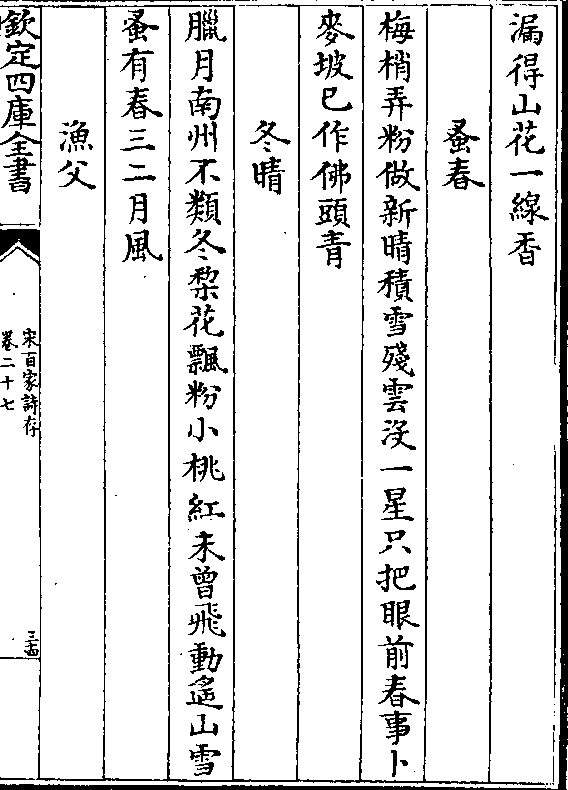 漏得山花一線香
蚤春
梅梢弄粉做新晴積雪殘雲没一星只把眼前春事卜
麥坡已作佛頭青
冬晴
臘月南州不類冬梨花飄粉小桃紅未曾飛動遙山雪
蚤有春三二月風
漁父
欽定四庫全書
宋百家詩存
卷二十七
三十四